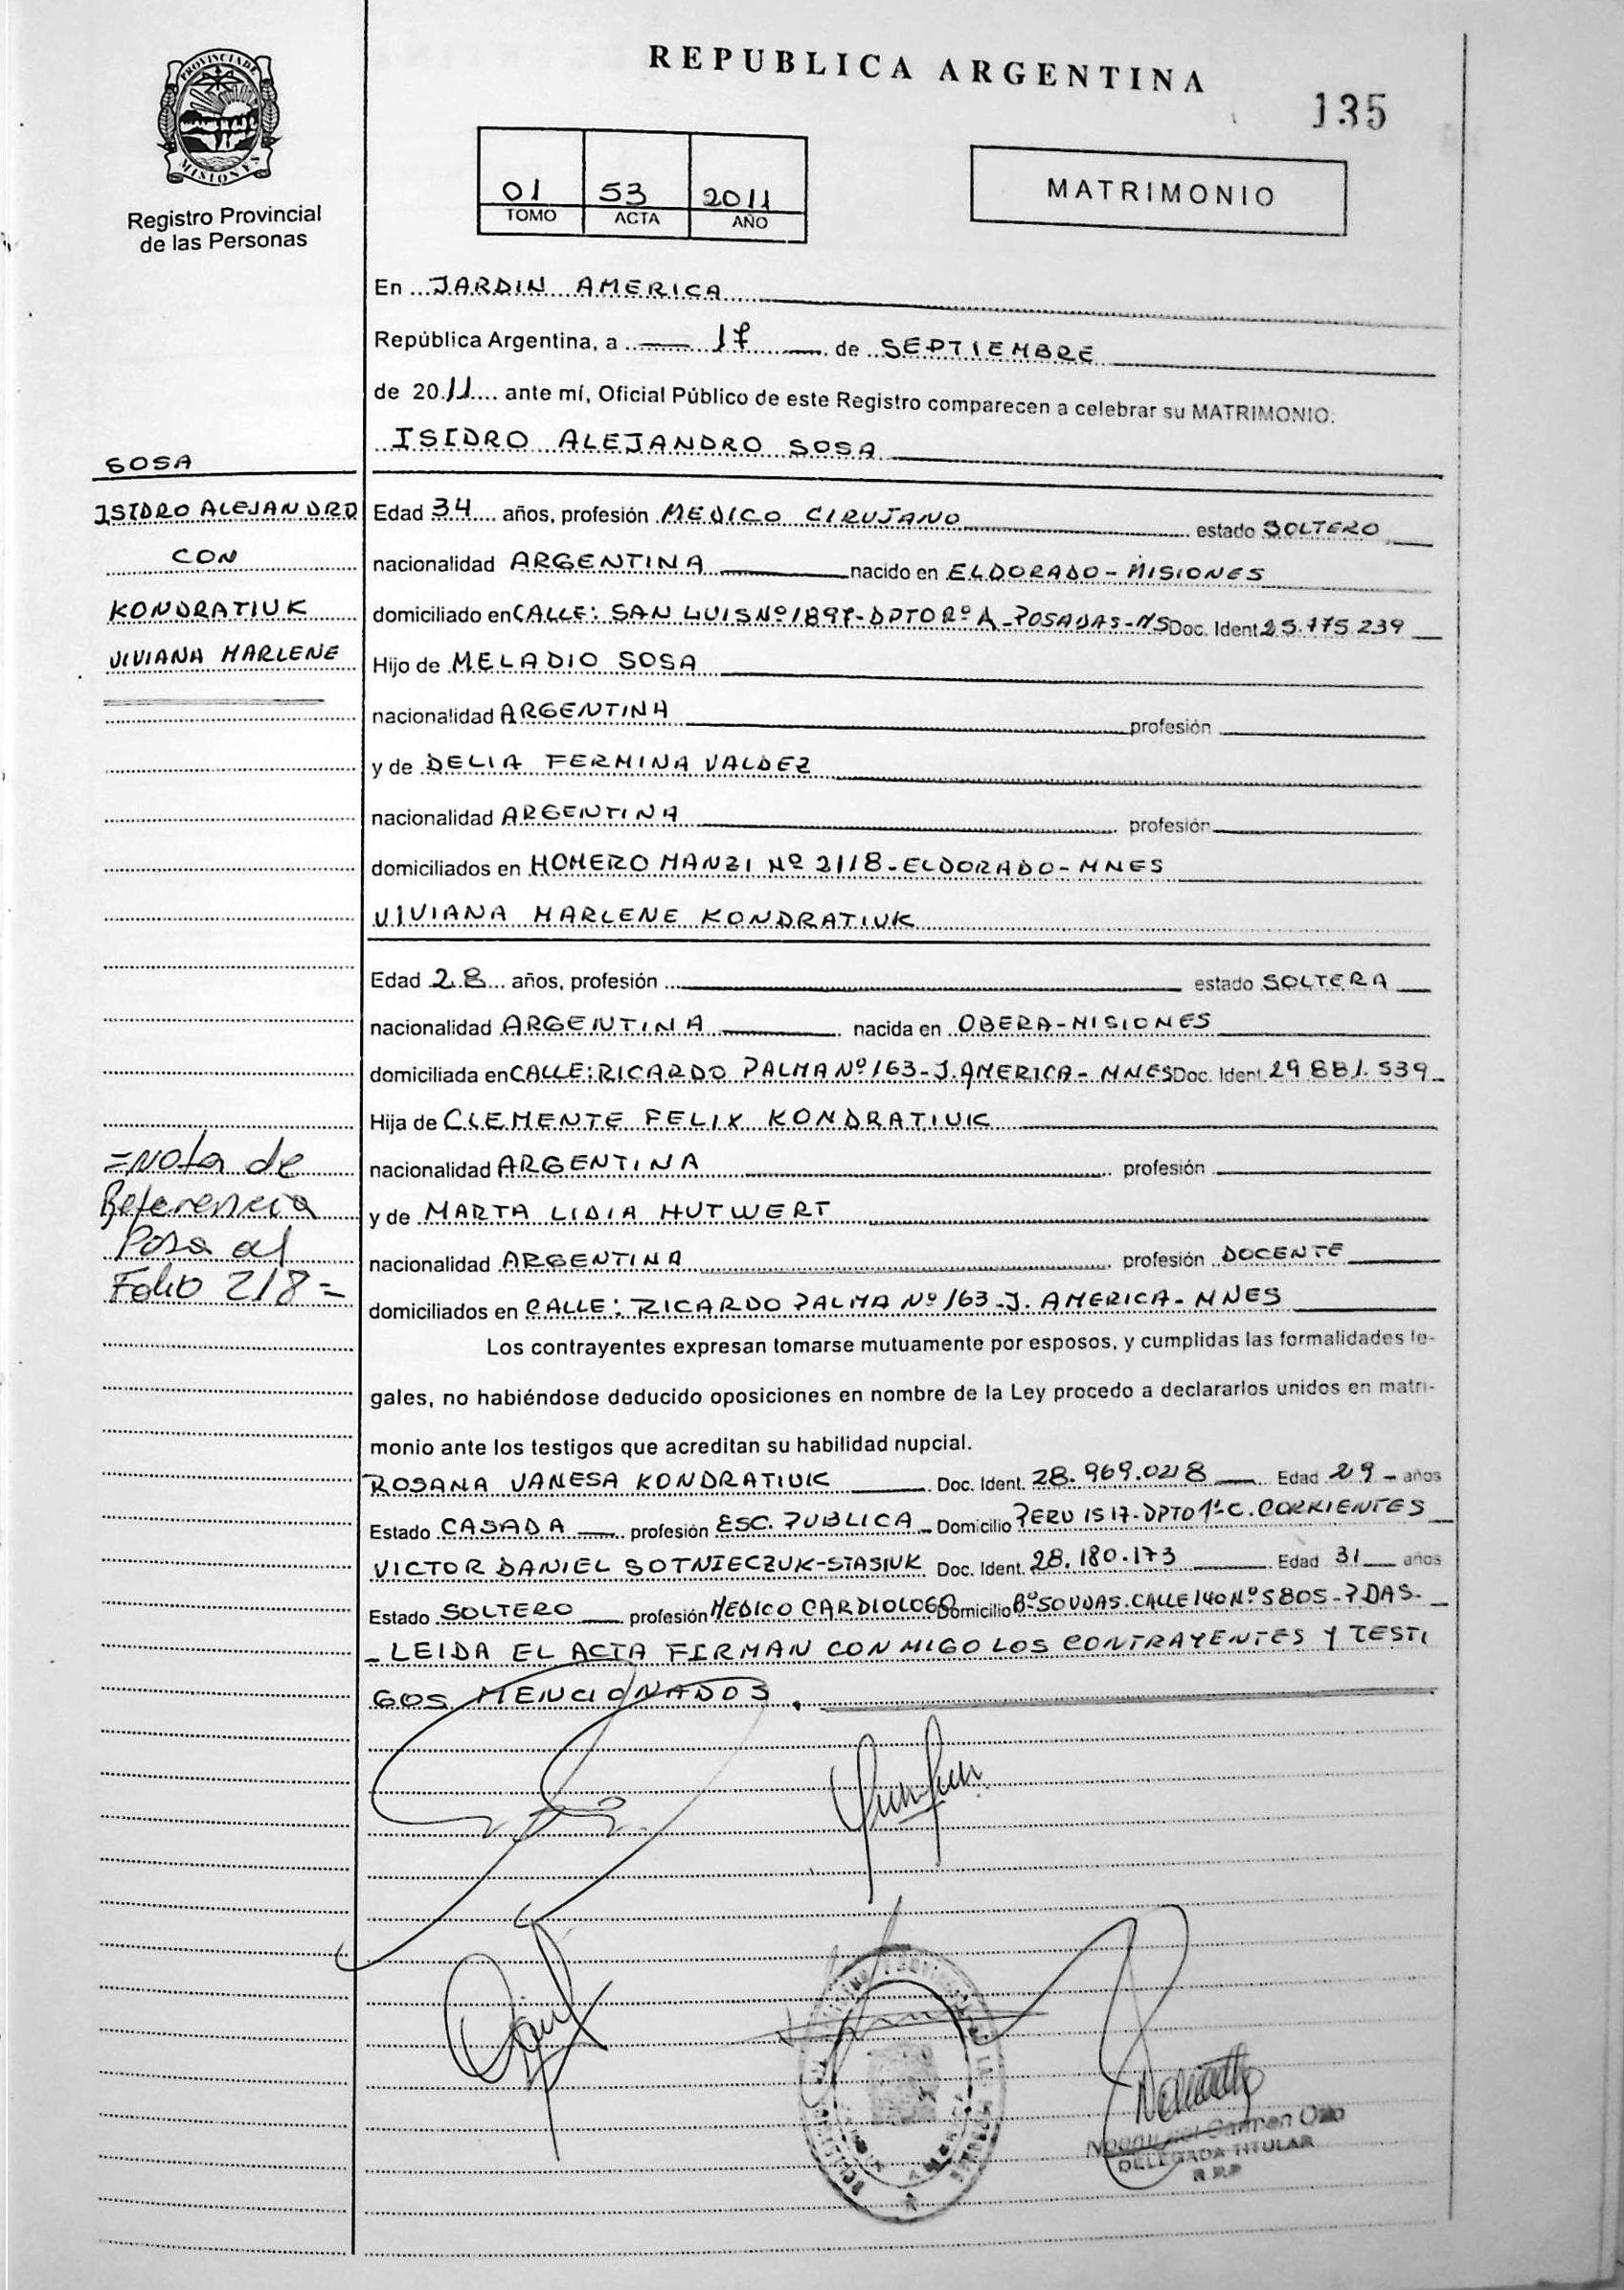 REPUBLICA ARGENTINA
135
PROVINCIA DE
MISIONES
Registro Provincial
de las Personas
01 53 2011
TOMO ACTA AÑO
MATRIMONIO
En JARDIN AMERICA
República Argentina, a 17 de SEPTIEMBRE
de 2011 ante mí, Oficial Público de este Registro comparecen a celebrar su MATRIMONIO.
ISIDRO ALEJANDRO SOSA
SOSA
ISIDRO ALEJANDRO
CON
KONDRATIUK
VIVIANA MARLENE
Edad 34 años, profesión MEDICO CIRUJANO estado SOLTERO
nacionalidad ARGENTINA nacido en ELDORADO-MISIONES
domiciliado en CALLE: SAN LUIS Nº 1897-DPTO Rº A-POSADAS-MS Doc. Ident. 25.775.239
Hijo de MELADIO SOSA
nacionalidad ARGENTINA profesión
y de DELIA FERMINA VALDEZ
nacionalidad ARGENTINA profesión
domiciliados en HOMERO MANZI Nº 2118-ELDORADO-MNES
VIVIANA MARLENE KONDRATIUK
Edad 28 años, profesión estado SOLTERA
nacionalidad ARGENTINA nacida en OBERA-MISIONES
domiciliada en CALLE: RICARDO PALMA Nº 163-J. AMERICA-MNES Doc. Ident. 29.881.539
Hija de CLEMENTE FELIX KONDRATIUK
nacionalidad ARGENTINA profesión
y de MARTA LIDIA HUTWERT
nacionalidad ARGENTINA profesión DOCENTE
domiciliados en CALLE: RICARDO PALMA Nº 163-J. AMERICA-MNES
=Nota de
Referencia
Pasa al
Folio 218=
Los contrayentes expresan tomarse mutuamente por esposos, y cumplidas las formalidades le-
gales, no habiéndose deducido oposiciones en nombre de la Ley procedo a declararlos unidos en matri-
monio ante los testigos que acreditan su habilidad nupcial.
ROSANA VANESA KONDRATIUK Doc. Ident. 28.969.028 Edad 29 años
Estado CASADA profesión ESC. PUBLICA Domicilio PERU 1517-DPTO 1º C. CORRIENTES
VICTOR DANIEL SOTNIECZUK-STASIUK Doc. Ident. 28.180.173 Edad 31 años
Estado SOLTERO profesión MEDICO CARDIOLOGO Domicilio Bº 50 VDAS. CALLE 140 Nº 5805-PDAS-
-LEIDA EL ACTA FIRMAN CONMIGO LOS CONTRAYENTES Y TESTI
GOS MENCIONADOS.
DELEGADA TITULAR
R.P.P